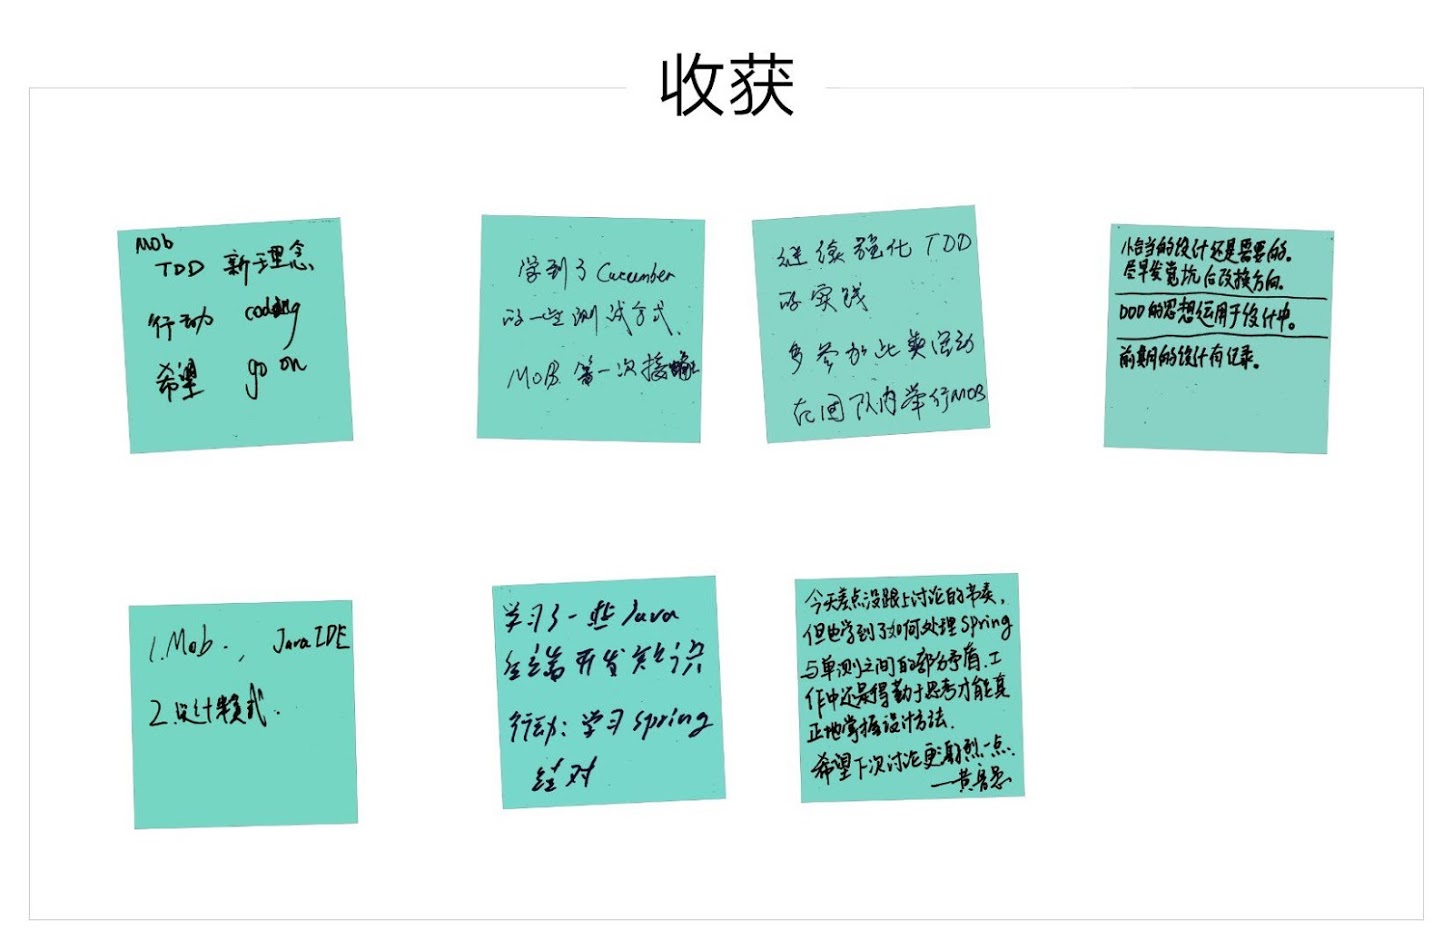 收获
MOB
TDD 新理念
行动 coding
希望 go on
学到了Cucumber
的一些测试方式.
MOB. 第一次接触
继续强化TDD
的实践
多参加此类活动
在团队内举行MOB
恰当的设计还是需要的。
尽早发觉坑后改换方向。
DDD的思想运用于设计中。
前期的设计有记录。
1.Mob., Java IDE
2.设计模式.
学习了一些Java
后端开发知识
行动: 学习spring
结对
今天差点没跟上讨论的节奏,
但也学到了如何处理Spring
与单测之间的部分矛盾.工
作中还是得勤于思考才能真
正地掌握设计方法.
希望下次讨论更激烈一点.